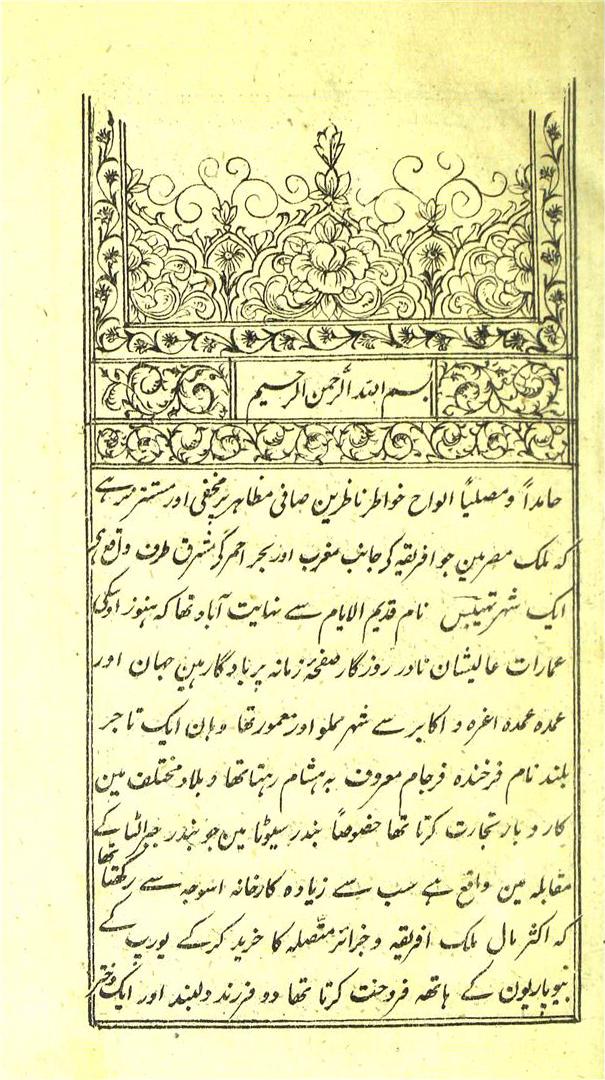 بسم اللہ الرحمن الرحیم
حامداً ومصلیاً الواح خواطر ناظرین صافی مظاہر پر مخفی اور مستتر نرہے
کہ ملک مصر مین جو افریقیہ کی جانب مغرب اور بحر احمر کی مشرق طرف واقع ہی
ایک شہر تہیبس نام قدیم الایام سے نہایت آباد تھا کہ ہنوز اوسکی
عمارات عالیشان نادر روزگار صفحۂ زمانہ پر یادگار ہین جہان اور
عمدہ عمدہ اعزہ و اکابر سے شہر مملو اور معمور تھا وہان ایک تاجر
بلند نام فرخندہ فرجام معروف بہ ہشام رہتا تھا و بلاد مختلف مین
کار و بار تجارت کرتا تھا خصوصاً بندر سیوٹا مین جو بندر جبرالٹا کے
مقابلہ مین واقع ہے سب سے زیادہ کارخانہ اسوجہ سے رکھتا تھا
کہ اکثر مال ملک افریقہ و جزائر متصلہ کا خرید کر کے یورپ کے
بیوپاریون کے ہاتھہ فروخت کرتا تھا دو فرزند دلبند اور ایک دختر